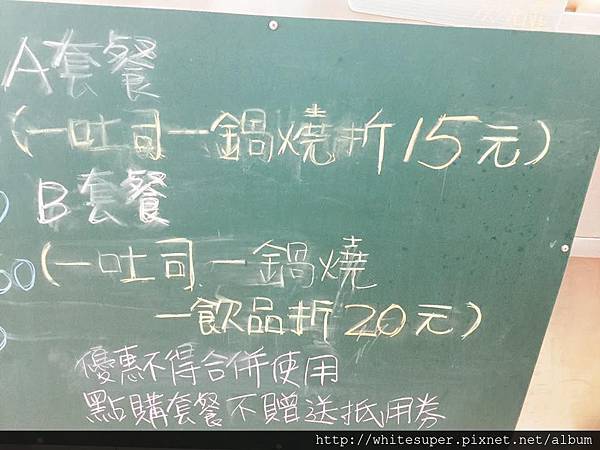 A套餐
(一吐司一鍋燒折15元)
B套餐
(一吐司一鍋燒
一飲品折20元)
優惠不得合併使用
點購套餐不贈送抵用券
http://whitesuper.pixnet.net/album